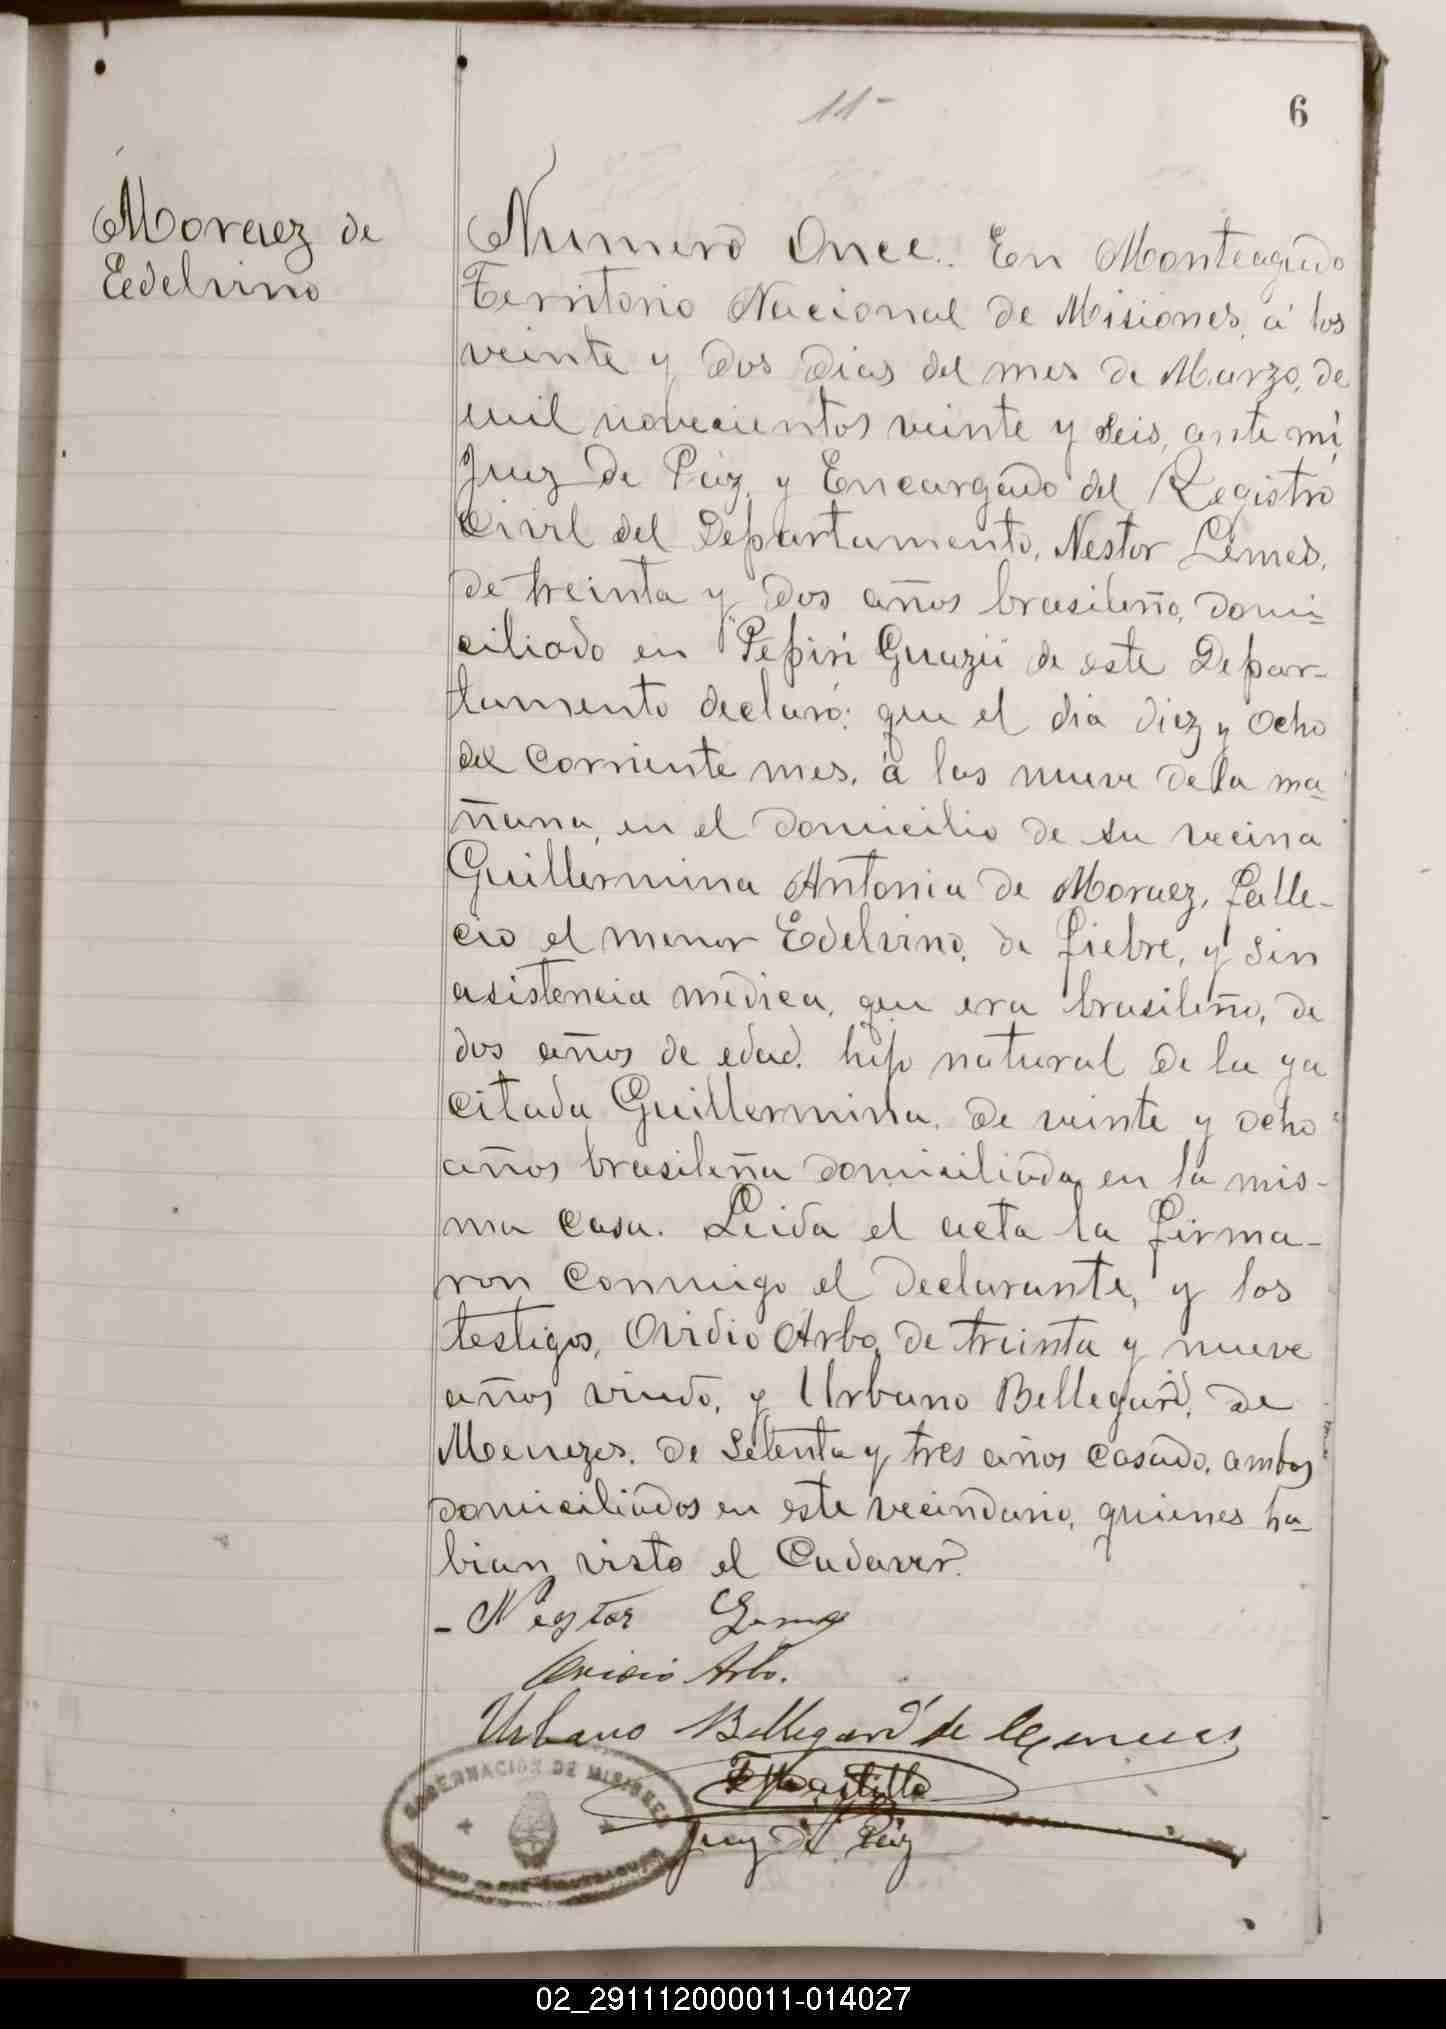 11-
6
Moraez de
Eedelvino
Numero Once. En Monteagudo
Territorio Nacional de Misiones, á los
veinte y dos dias del mes de Marzo, de
mil novecientos veinte y seis, ante mi,
Juez de Páz, y Encargado del Registro
Civil del Departamento, Nestor Lemes,
de treinta y dos años brasileño, domi=
ciliado en "Pepiri Guazú de este Depar-
tamento declaró: que el dia diez y ocho
del corriente mes, á las nueve de la ma=
ñana, en el domicilio de su vecina
Guillermina Antonia de Moraez, falle-
cio el menor Edelvino, de fiebre, y sin
asistencia médica, que era brasileño, de
dos años de edad, hijo natural de la ya
citada Guillermina, de veinte y ocho
años brasileña domiciliada en la mis-
ma casa. Leida el acta la firma-
ron conmigo el declarante, y los
testigos, Ovidio Arbo, de treinta y nueve
años viudo, y Urbano Bellegard, de
Menezes, de setenta y tres años casado, ambos
domiciliados en este vecindario, quienes ha=
bian visto el Cadaver.
- Nestor Lemes
Ovidio Arbo.
Urbano Bellegard de Menezes
Juez de Páz
GOBERNACION DE MISIONES
02_291112000011-014027